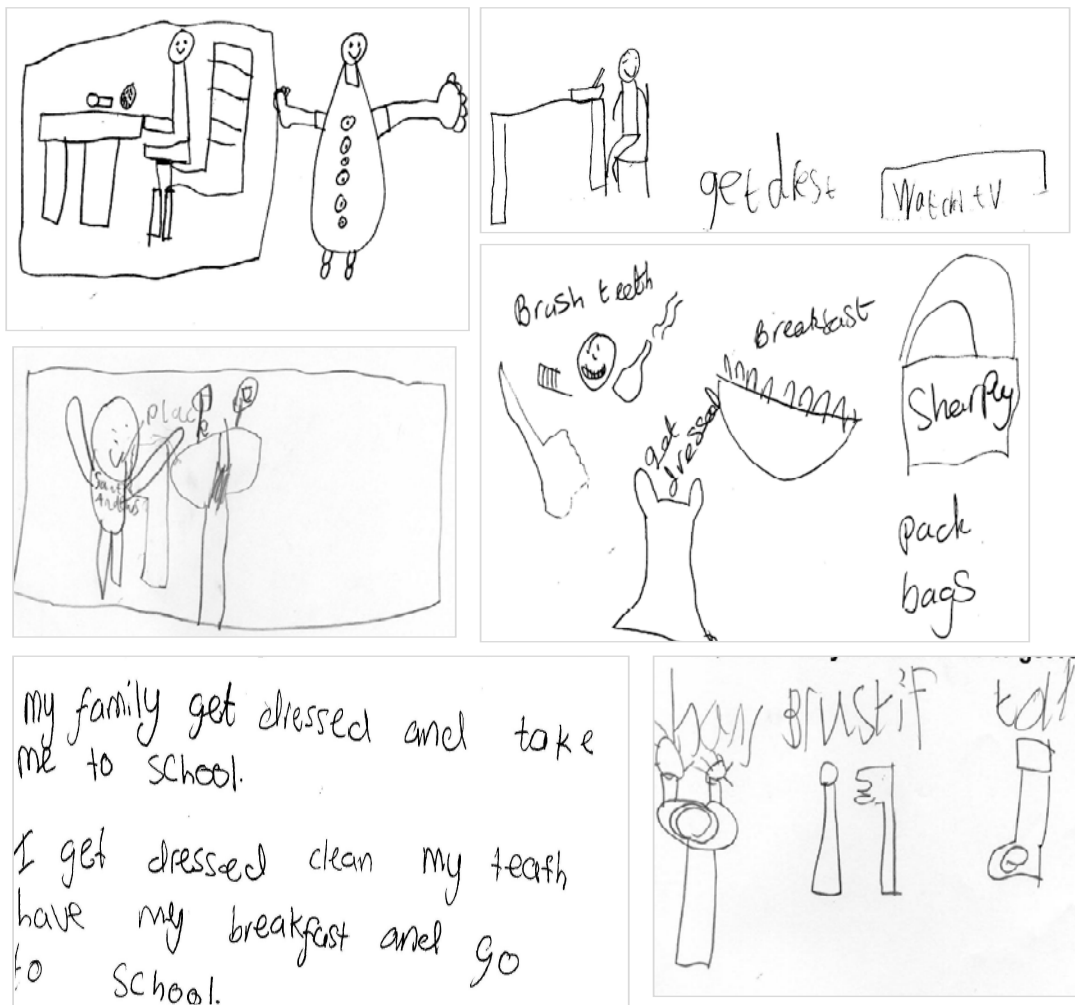 get drest
Watch tV
Brush teeth
Breakfast
get
dressed
Sharpley
pack
bags
place
my family get dressed and take
me to school.
I get dressed clean my teath
have my breakfast and go
to school.